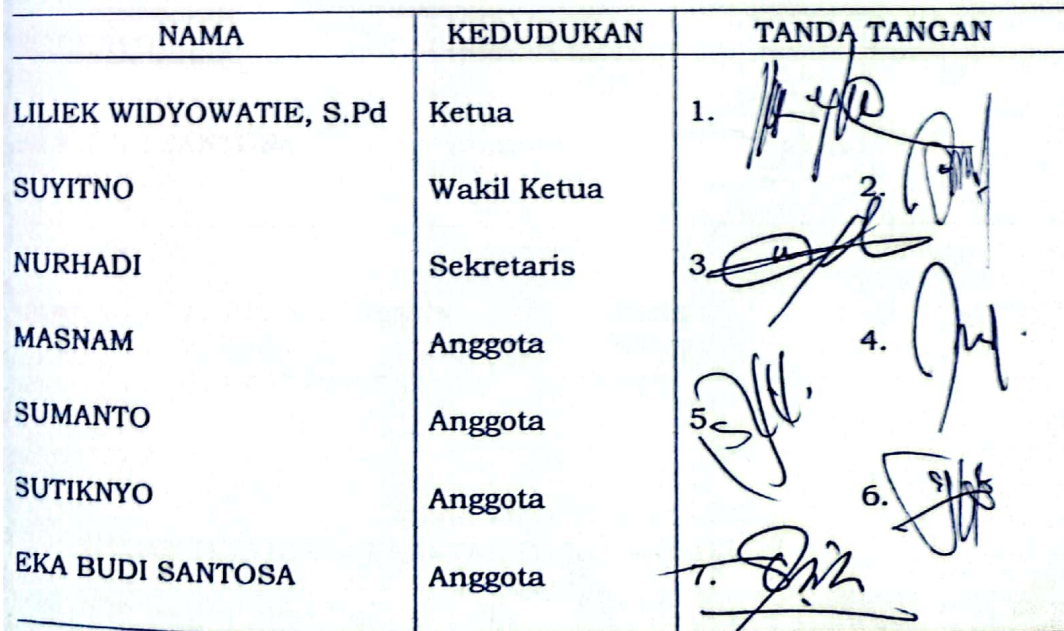 NAMA KEDUDUKAN TANDA TANGAN
LILIEK WIDYOWATIE, S.Pd Ketua 1.
SUYITNO Wakil Ketua 2.
NURHADI Sekretaris 3
MASNAM Anggota 4.
SUMANTO Anggota 5
SUTIKNYO Anggota 6.
EKA BUDI SANTOSA Anggota 7.